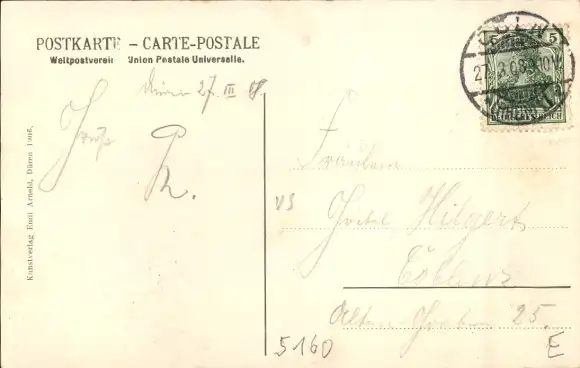 POSTKARTE – CARTE-POSTALE
Weltpostverein Union Postale Universelle.
Düren 27 III 08
Gruß
R.
Kunstverlag Emil Arnold, Düren 1906.
5
27.3.08. 10V
DEUTSCHES REICH
Fräulein
VS
Hilgert
Coblenz
25.
5160
E